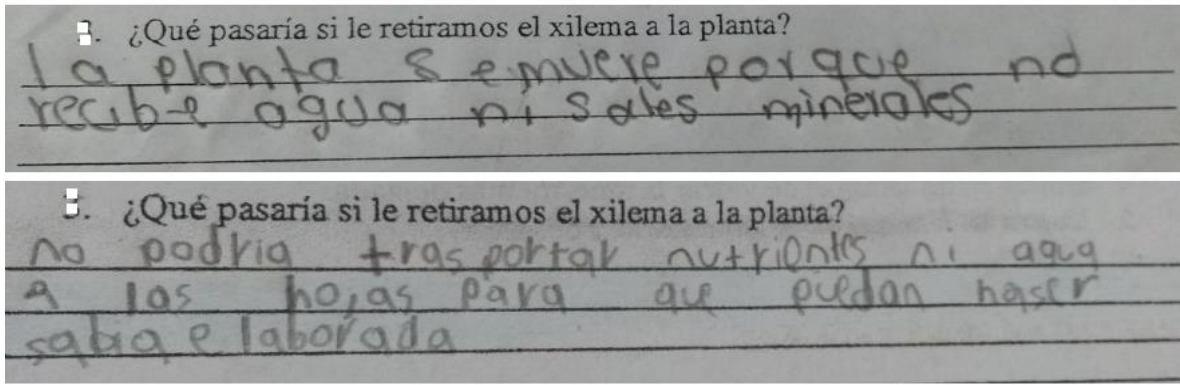 3. ¿Qué pasaría si le retiramos el xilema a la planta?
la planta se muere porque no
recibe agua ni sales minerales
3. ¿Qué pasaría si le retiramos el xilema a la planta?
no podria trasportar nutrientes ni agua
a las hojas para que puedan haser
sabia elaborada